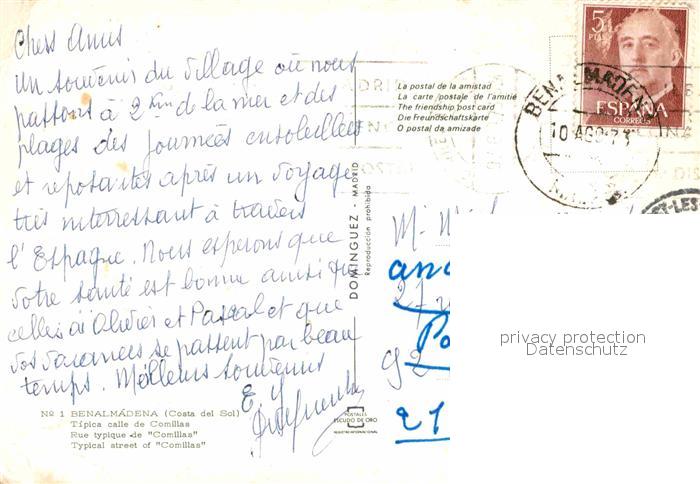 Chers Amis
Un souvenir du village où nous
passons à 2 Km de la mer et des
plages des journées ensoleillées
et reposantes après un voyage
très interressant à travers
l'Espagne. Nous esperons que
votre santé est bonne ainsi que
celles d'Olivier et Pascal et que
vos vacances se passent par beau
temps. Meilleurs souvenirs
Nº 1 BENALMÁDENA (Costa del Sol)
Típica calle de Comillas
Rue typique de "Comillas"
Typical street of "Comillas"
DOMINGUEZ - MADRID
Reproducción prohibida
POSTALES
ESCUDO DE ORO
REGISTRO INTERNACIONAL
La postal de la amistad
La carte postale de l'amitié
The friendship post card
Die Freundschaftskarte
O postal da amizade
5
PTAS
ESPAÑA
CORREOS
BENALMADENA
10 AGO 73
M.
27
92
21
privacy protection
Datenschutz